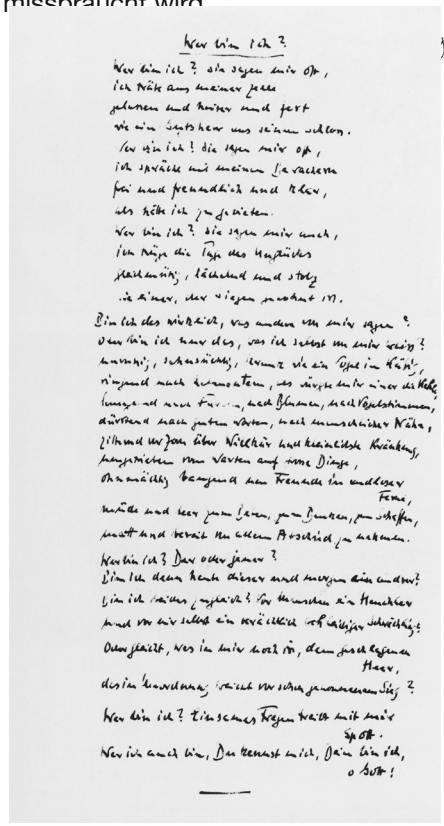 missbraucht wird
Wer bin ich?
Wer bin ich? Sie sagen mir oft,
ich träte aus meiner Zelle
gelassen und heiter und fest
wie ein Gutsherr aus seinem Schloss.
Wer bin ich? Sie sagen mir oft,
ich spräche mit meinen Bewachern
frei und freundlich und klar,
als hätte ich zu gebieten.
Wer bin ich? Sie sagen mir auch,
ich trüge die Tage des Unglücks
gleichmütig, lächelnd und stolz
wie einer, der Siegen gewohnt ist.
Bin ich das wirklich, was andere von mir sagen?
Oder bin ich nur das, was ich selbst von mir weiss?
unruhig, sehnsüchtig, krank wie ein Vogel im Käfig,
ringend nach Lebensatem, als würgte mir einer die Kehle,
hungernd nach Farben, nach Blumen, nach Vogelstimmen,
dürstend nach guten Worten, nach menschlicher Nähe,
zitternd vor Zorn über Willkür und kleinlichste Kränkung,
umgetrieben vom Warten auf grosse Dinge,
ohnmächtig bangend um Freunde in endloser
Ferne,
müde und leer zum Beten, zum Denken, zum Schaffen,
matt und bereit von allem Abschied zu nehmen.
Wer bin ich? Der oder jener?
Bin ich denn heute dieser und morgen ein andrer?
Bin ich beides zugleich? Vor Menschen ein Heuchler
und vor mir selbst ein verächlich wehleidiger Schwächling?
Oder gleicht, was in mir noch ist, dem geschlagenen
Heer,
das in Unordnung weicht vor schon gewonnenem Sieg?
Wer bin ich? Einsames Fragen treibt mit mir
Spott.
Wer ich auch bin, Du kennst mich, Dein bin ich,
o Gott!